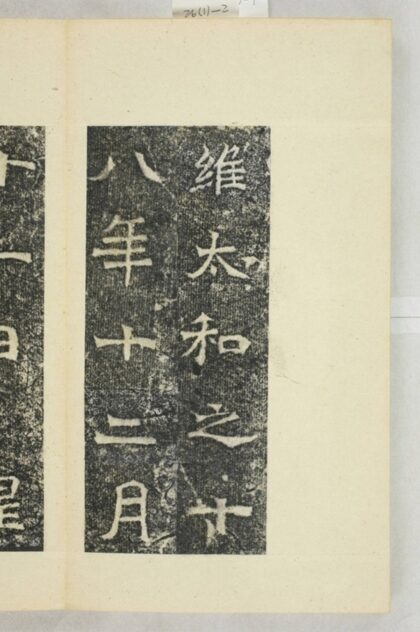 26(1)-2
維太和之十
八年十二月
十一日皇